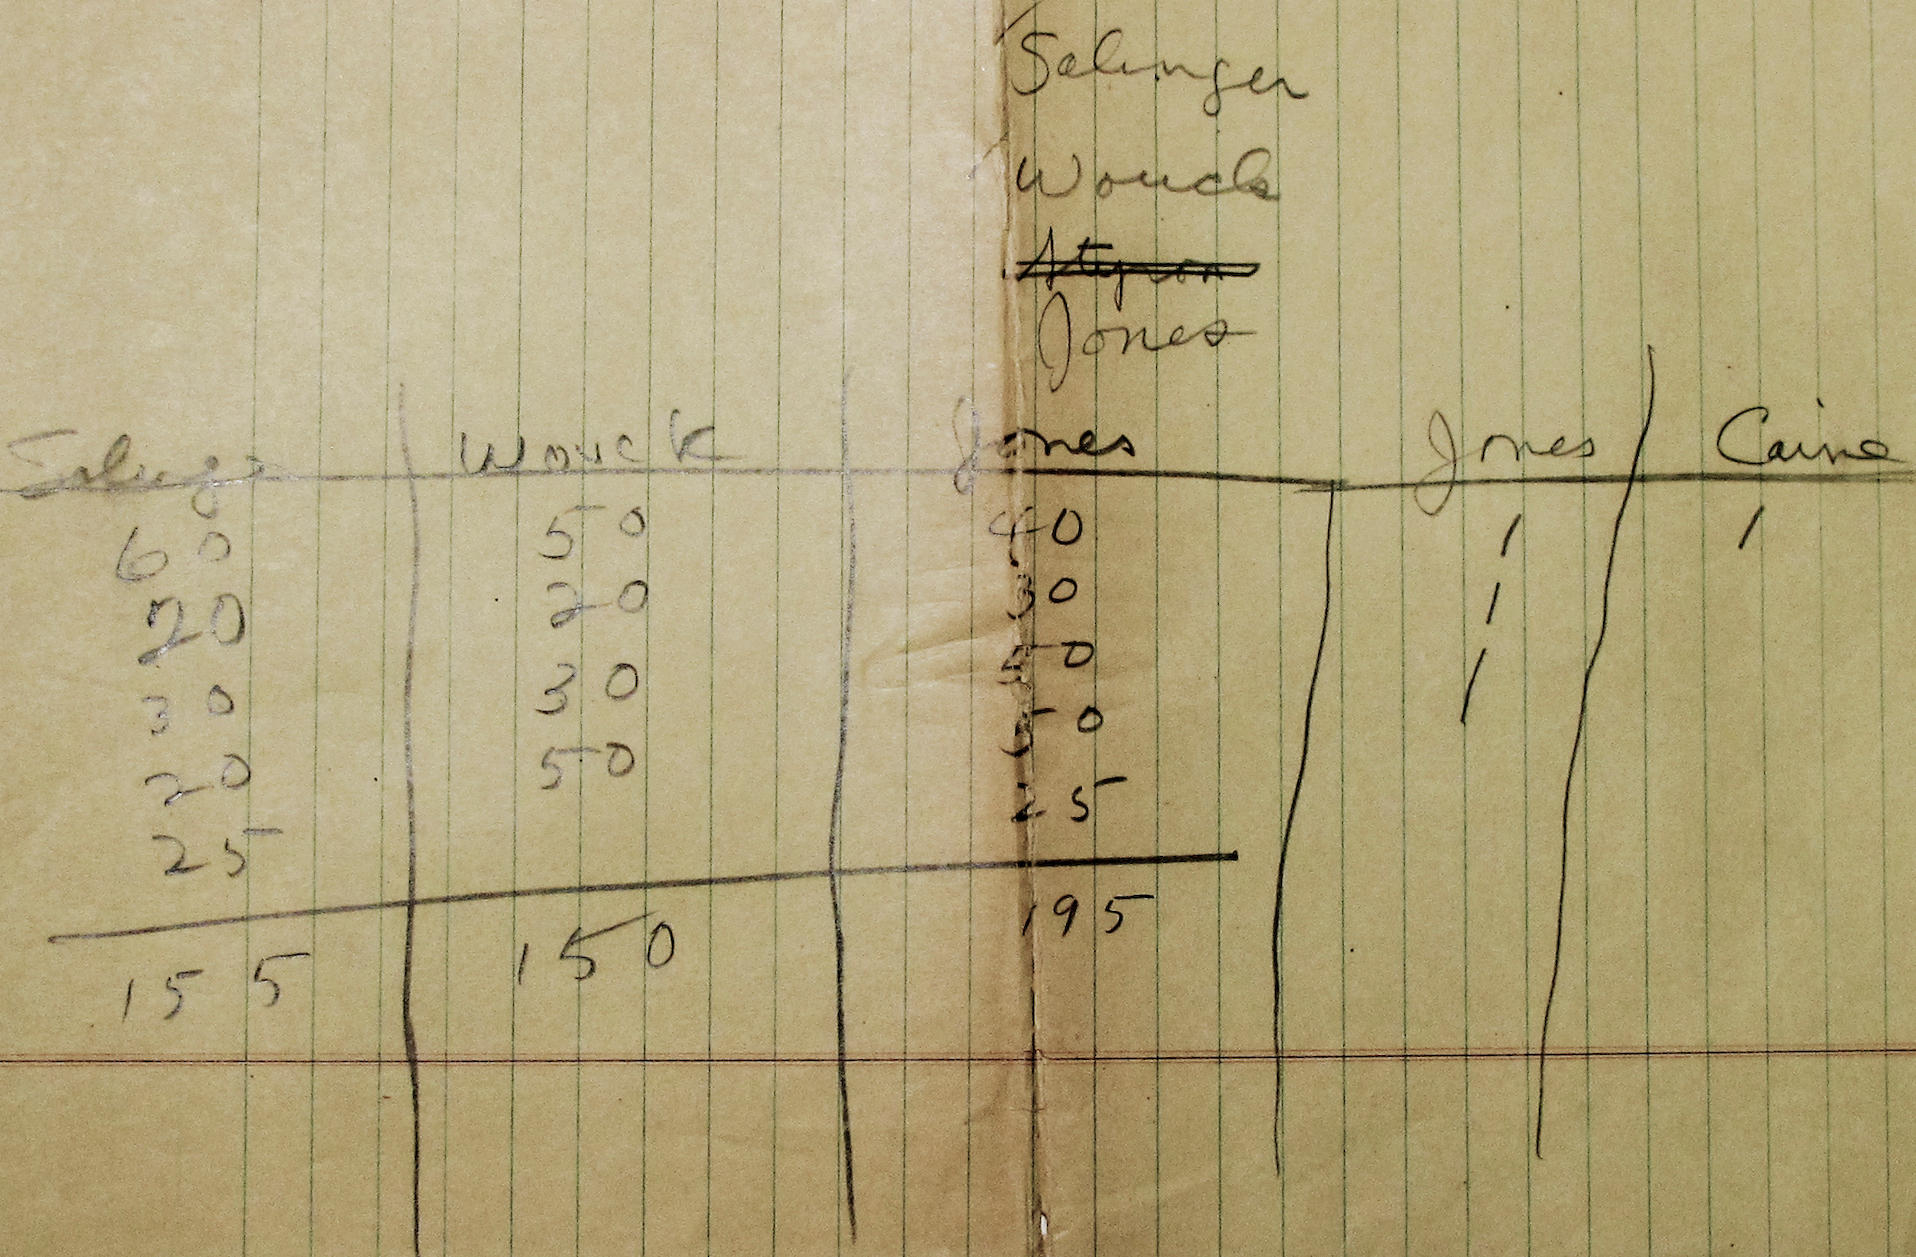 Salinger
Wouck
Styron
Jones
Salinger Wouck Jones Jones Caine
60 50 40 / /
20 20 30 /
30 30 50 /
20 50 50
25 25
155 150 195